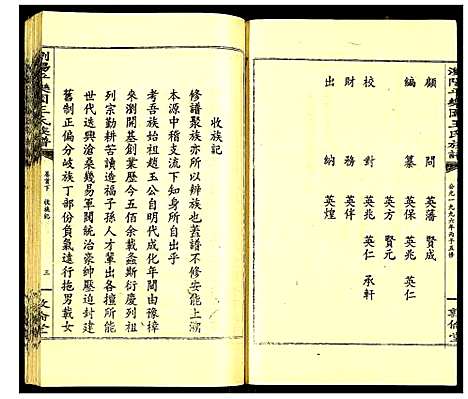 顧問 英藩 賢成
編纂 英保 英仁
英方 賢元
校對 英兆 英仁 承軒
財務 英伴
出納 英煌
公元一九九六年丙子五修
敦倫堂
瀏陽平樂園王氏族譜
卷首下 收族記
三
收族記
修譜聚族亦所以辨族也蓋譜不修安能上溯
本源中稽支流下知自出乎
考吾族始祖趙玉公自明代成化年間由豫樟
來瀏開基創業歷今五佰餘載螽斯衍慶列祖
列宗勤耕苦讀造福子孫人才輩出各擅所能
迨興進化滄桑幾易軍閥統治豪紳壓迫封建
舊制正偏分岐族丁部份負氣遠行拖男載女